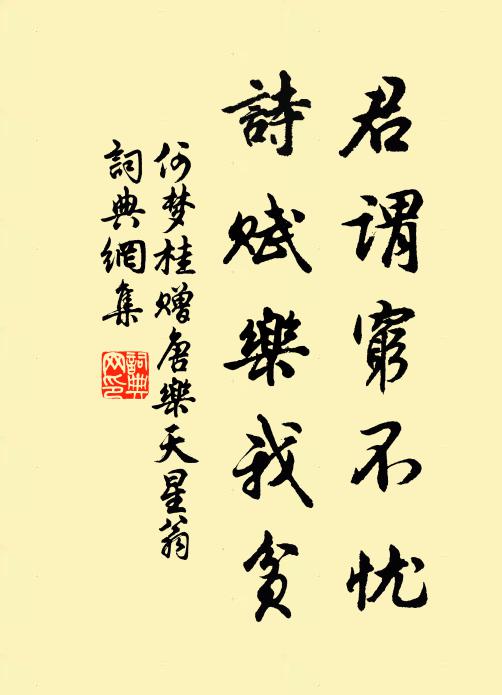 君謂窮不忧
詩赋樂我貧
何梦桂赠唐樂天星翁
詞典網集
詞典网印